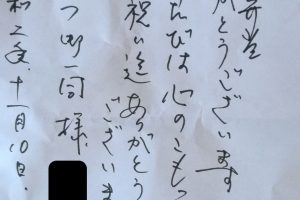 弁当
がとうございます
たびは心のこもっ
祝い迄ありがとう
ございま
つ野一同様
和二年十一月10日